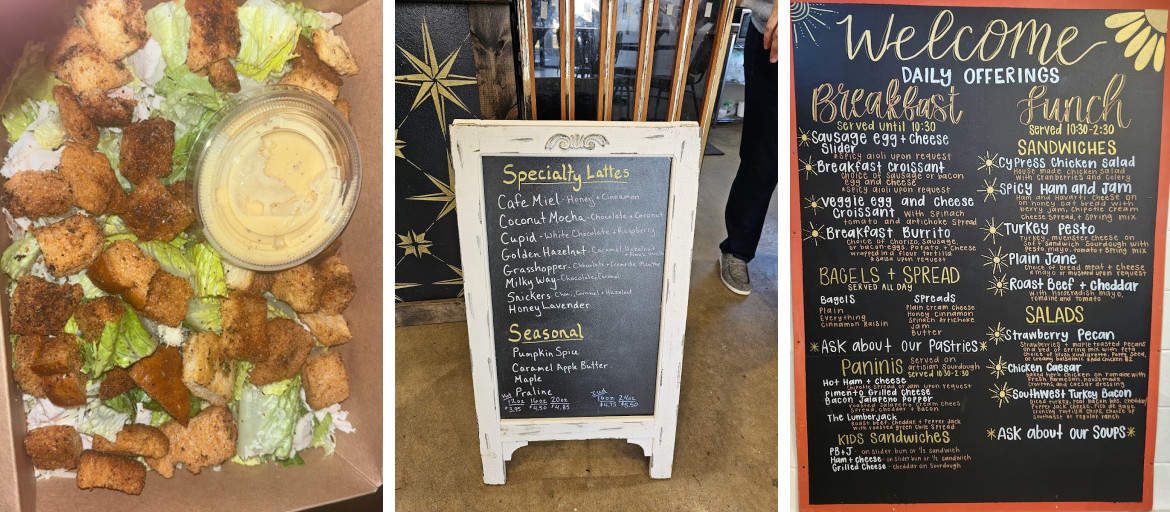 Specialty Lattes
Cafe Miel - Honey + Cinnamon
Coconut Mocha - Chocolate + Coconut
Cupid - White Chocolate + Raspberry
Golden Hazelnut - Caramel, Hazelnut
Grasshopper - Chocolate + Creme de Menthe
Milky Way - Chocolate, Caramel
Snickers Choc, Caramel + Hazelnut
Honey Lavender
Seasonal
Pumpkin Spice
Caramel Apple Butter
Maple
Praline
Hot
12oz 16oz 20oz
$3.95 $4.50 $4.85
16oz 24oz
$4.75 $5.50
Welcome
DAILY OFFERINGS
Breakfast
Served until 10:30
Sausage egg + cheese
Slider
*Spicy aioli upon request
Breakfast Croissant
choice of sausage or bacon
egg and cheese
*Spicy aioli upon request
Veggie egg and cheese
Croissant with Spinach
tomato and artichoke Spread
Breakfast Burrito
Choice of chorizo, Sausage,
or bacon-eggs, potato, + cheese
wrapped in a flour tortilla
*Salsa upon request
BAGELS + SPREAD
SERVED ALL DAY
Bagels
Plain
Everything
Cinnamon Raisin
Spreads
Plain cream cheese
Honey Cinnamon
Spinach artichoke
Jam
Butter
*Ask about our Pastries*
Paninis Served on
artisian Sourdough
Served 10:30-2:30
Hot Ham + cheese
Pimento Grilled cheese
Bacon Jalapeno Popper
The Lumberjack
Roast beef, cheddar + Pepper Jack
with roasted green chile Spread
Kids Sandwiches
PB+J - on slider bun or 1/2 sandwich
Ham + cheese - on slider bun or 1/2 sandwich
Grilled Cheese - cheddar on Sourdough
Lunch
Served 10:30-2:30
SANDWICHES
Cypress Chicken Salad
House made chicken salad
with cranberries and celery
Spicy Ham and Jam
Ham and Havarti cheese on
on honey oat bread with
berry jam, chipotle cream
cheese spread, + Spring mix
Turkey Pesto
Turkey, muenster cheese on
soft sandwich Sourdough with
Pesto mayo, tomato + Spring mix
Plain Jane
Choice of bread meat + cheese
*mayo or mustard upon request
Roast Beef + Cheddar
with horseradish mayo,
romaine and tomato
SALADS
Strawberry Pecan
Strawberries + maple toasted Pecans
Chicken Caesar
baked herb chicken on romaine with
fresh Parmesan, housemade
croutons and Caesar dressing
Southwest Turkey Bacon
*Ask about our Soups*